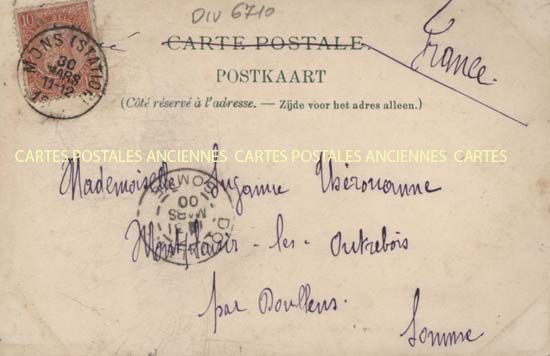 DIV 6710
10
MONS (STATION)
30
MARS
11-12
CARTE POSTALE.
France.
POSTKAART
(Côté réservé à l'adresse. — Zijde voor het adres alleen.)
CARTES POSTALES ANCIENNES CARTES POSTALES ANCIENNES CARTES
Mademoiselle Suzanne Thérouanne
31
MARS
00
Montplaisir-les-Outrebois
par Doullens.
Somme